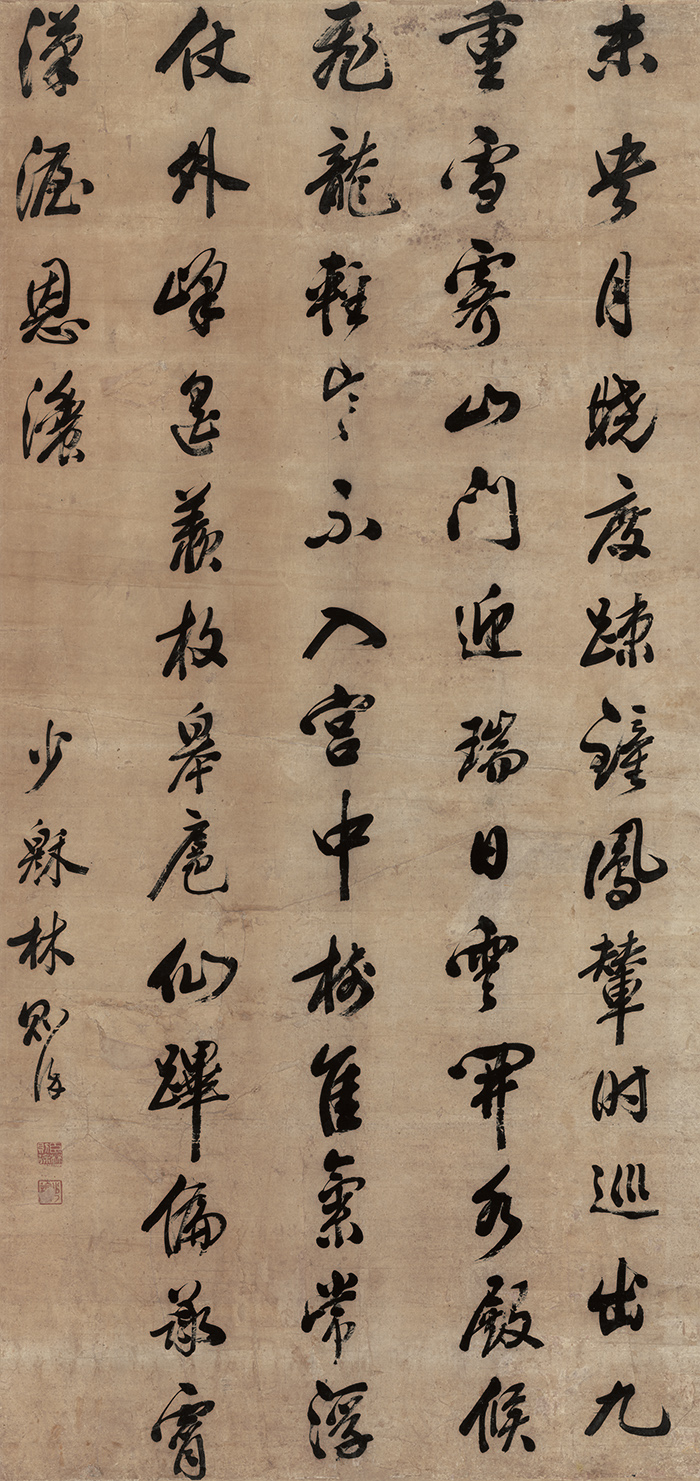 未央月曉度疎鐘鳳輦时巡出九
重雪霽山門迎瑞日雲開水殿候
飛龍輕寒不入宮中樹佳氣常浮
仗外峰遥羨枚皋扈仙蹕偏承霄
漢渥恩濃
少穌林則徐